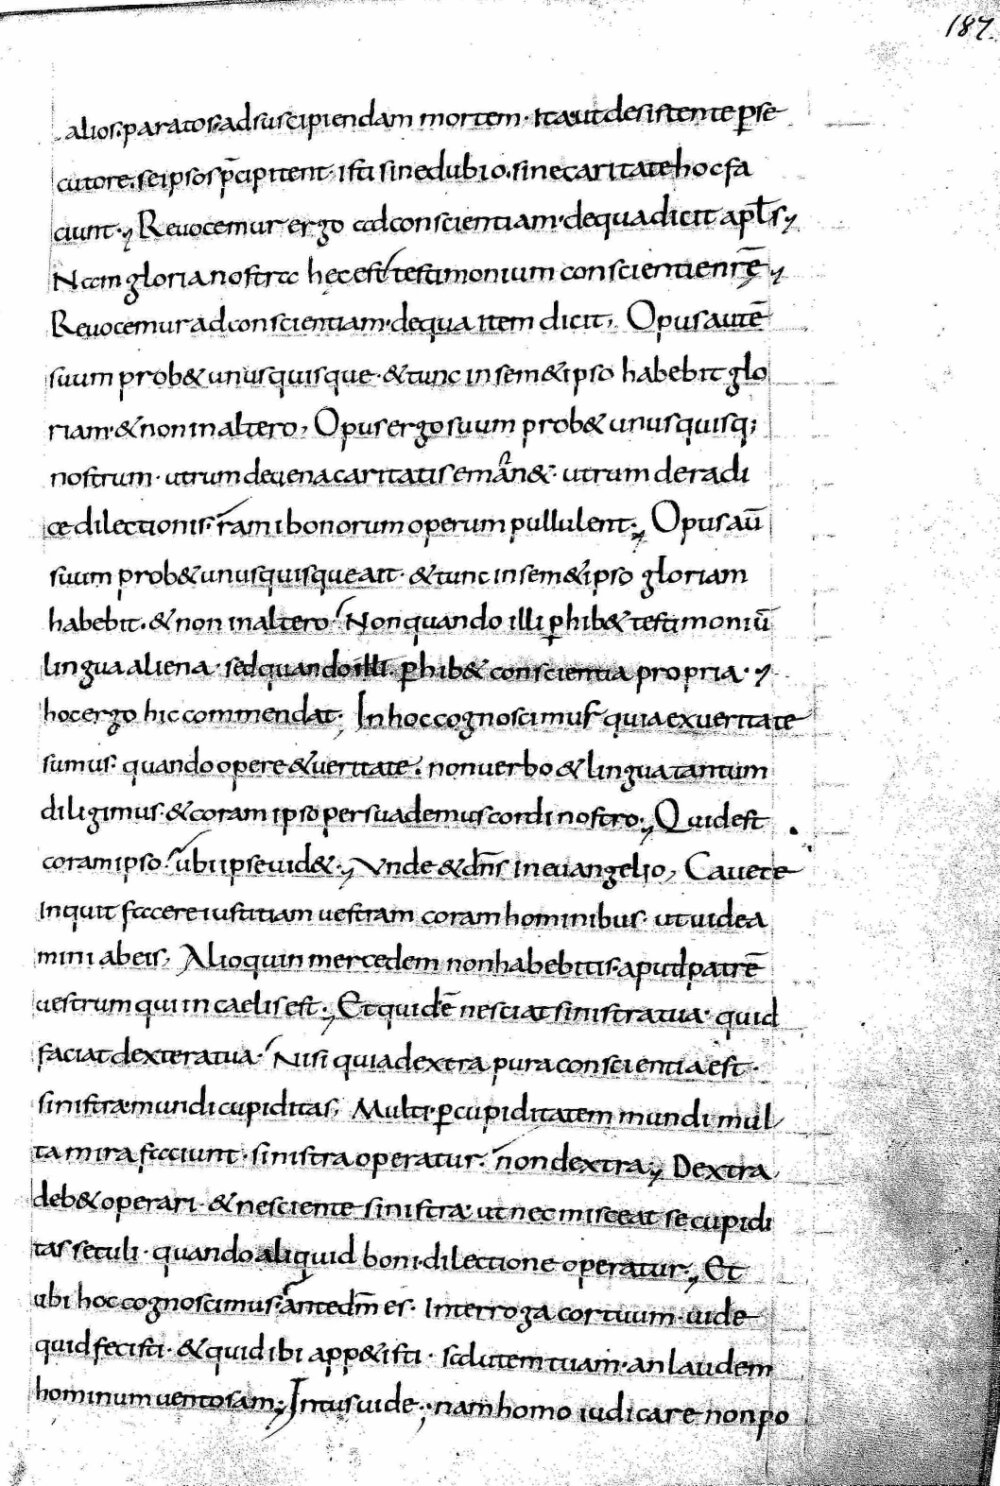 187.
alios. paratos. ad suscipiendam mortem. Ita ut desistente p̱se
cutore. se ipsos p̄cipitent. isti sine dubio. sine caritate hoc fa
ciunt.; Reuocemur ergo ad conscientiam. de qua dicit apłs;
Nam gloria nostra hec est testimonium conscientie nr̄ę;
Reuocemur ad conscientiam. de qua item dicit, Opus autē
suum prob& unusquisque. & tunc in sem&ipso habebit glo
riam. & non in altero, Opus ergo suum prob& unusquisq;
nostrum. utrum de uena caritatis eman&. utrum de radi
ce dilectionis. rami bonorum operum pullulent.; Opus aū
suum prob& unusquisque ait. & tunc in sem&ipso gloriam
habebit. & non in altero. Non quando illi p̱hib& testimoniū
lingua aliena. sed quando illi. p̱hib& conscientia propria.;
hoc ergo hic commendat; In hoc cognoscimus quia ex ueritate
sumus. quando opere & ueritate. non uerbo & lingua tantum
diligimus. & coram ipso persuademus cordi nostro.; Quid est
coram ipso. ubi ipse uid&.; Vnde & dn̄s in euangelio, Cauete
inquit facere iustitiam uestram coram hominibus. ut uidea
mini ab eis, Alioquin mercedem non habebitis. apud patrē
uestrum qui in caelis est.; Et quid ē nesciat sinistra tua. quid
faciat dextera tua. Nisi quia dextra pura conscientia est.
sinistra mundi cupiditas, Multi p̱ cupiditatem mundi mul
ta mira faciunt. sinistra operatur. non dextra; Dextra
deb& operari. & nesciente sinistra. ut nec misceat se cupidi
tas seculi. quando aliquid boni. dilectione operatur.; Et
ubi hoc cognoscimus. ante dm̄ es. Interroga cor tuum. uide
quid fecisti. & quid ibi app&isti. salutem tuam. an laudem
hominum uentosam; Intus uide; nam homo iudicare non po